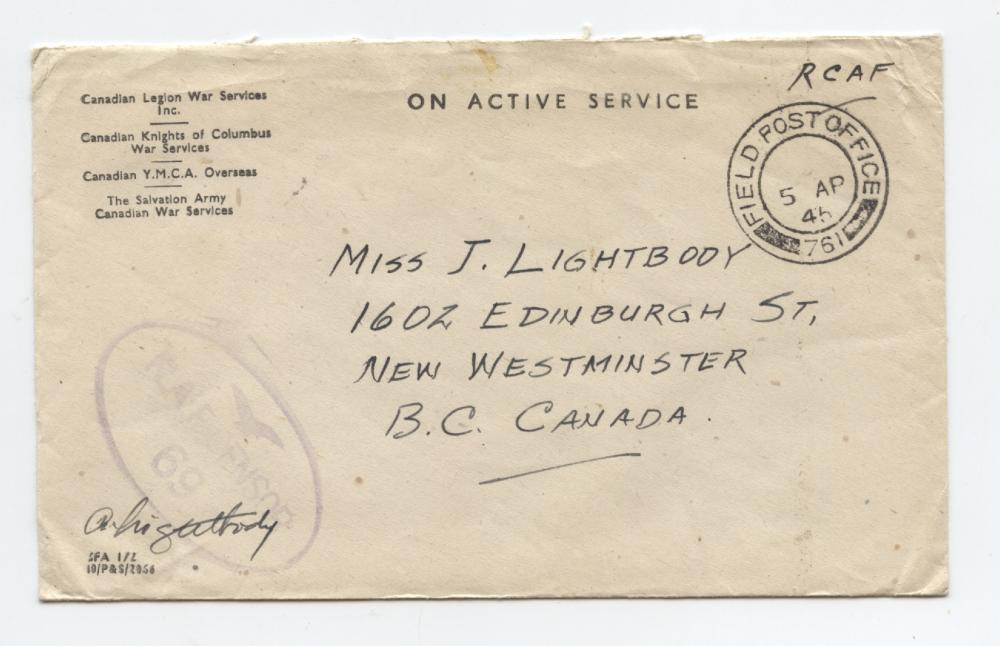 Canadian Legion War Services
Inc.
Canadian Knights of Columbus
War Services
Canadian Y.M.C.A. Overseas
The Salvation Army
Canadian War Services
ON ACTIVE SERVICE
RCAF
FIELD POST OFFICE
5 AP
45
761
MISS J. LIGHTBODY
1602 EDINBURGH ST,
NEW WESTMINSTER
B.C. CANADA.
R.A.F. CENSOR
69
A. Lightbody
SFA 1/2
10/P&S/2056